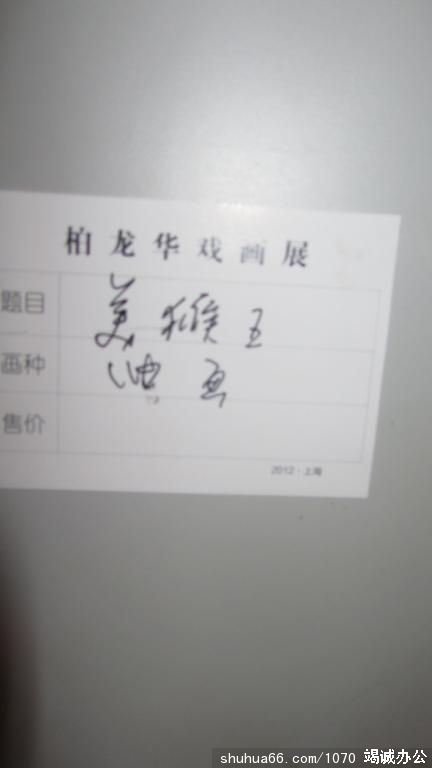 柏龙华戏画展
题目 美猴王
画种 油画
售价
2012·上海
shuhua66.com/1070 竭诚办公